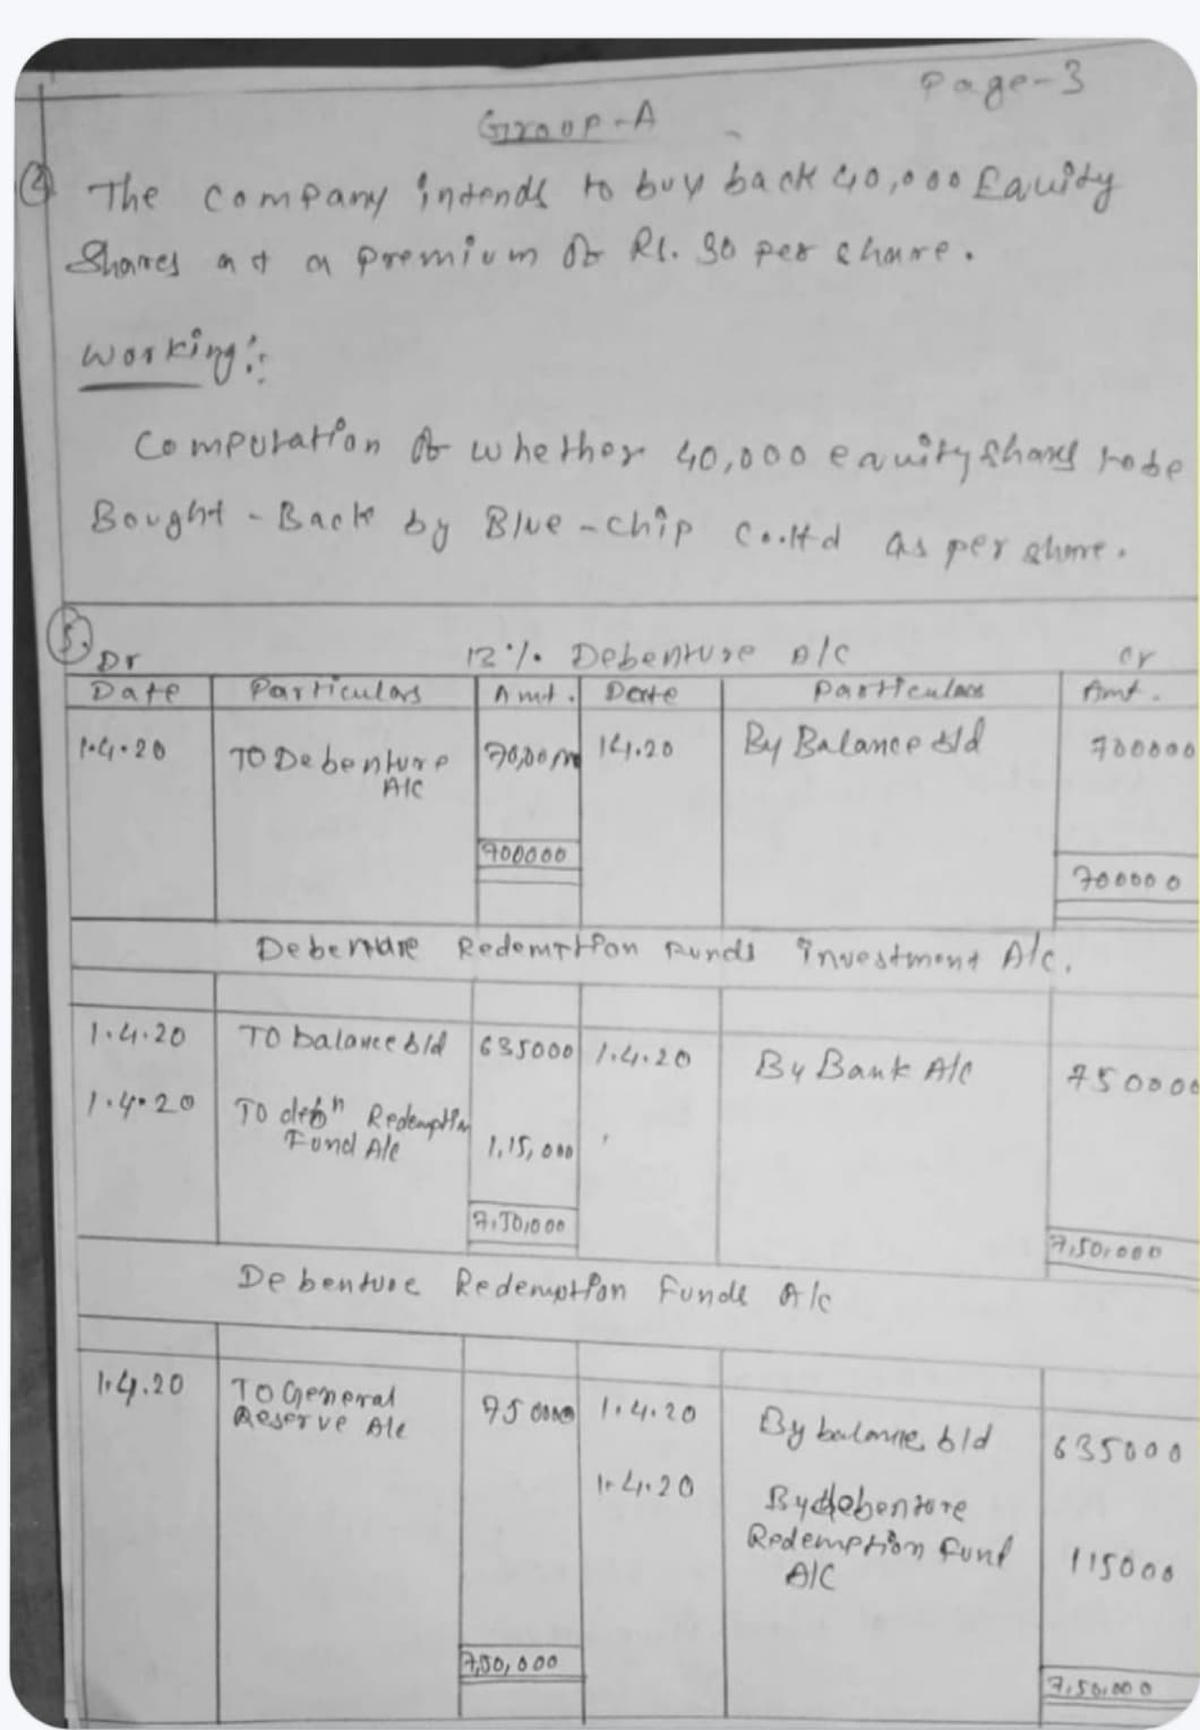 Page-3
Group-A
④ The company intends to buy back 40,000 Equity
Shares at a premium of Rs. 30 per share.
Working:-
Computation of whether 40,000 equity shares to be
Bought-Back by Blue-chip Co.ltd as per share.
⑤. Dr 12% Debenture A/C Cr
Date Particulars Amt. Date Particulars Amt.
1.4.20 To Debenture A/C 1.4.20 By Balance b/d 700000
700000 700000
Debenture Redemption Funds investment A/c.
1.4.20 To balance b/d 635000 1.4.20 By Bank A/C 750000
1.4.20 To debn Redemption Fund A/c 1,15,000
7,50,000 7,50,000
Debenture Redemption Funds A/c
1.4.20 To General Reserve A/c 750000 1.4.20 By balance b/d 635000
1.4.20 By debenture Redemption Fund A/C 115000
7,50,000 7,50,000